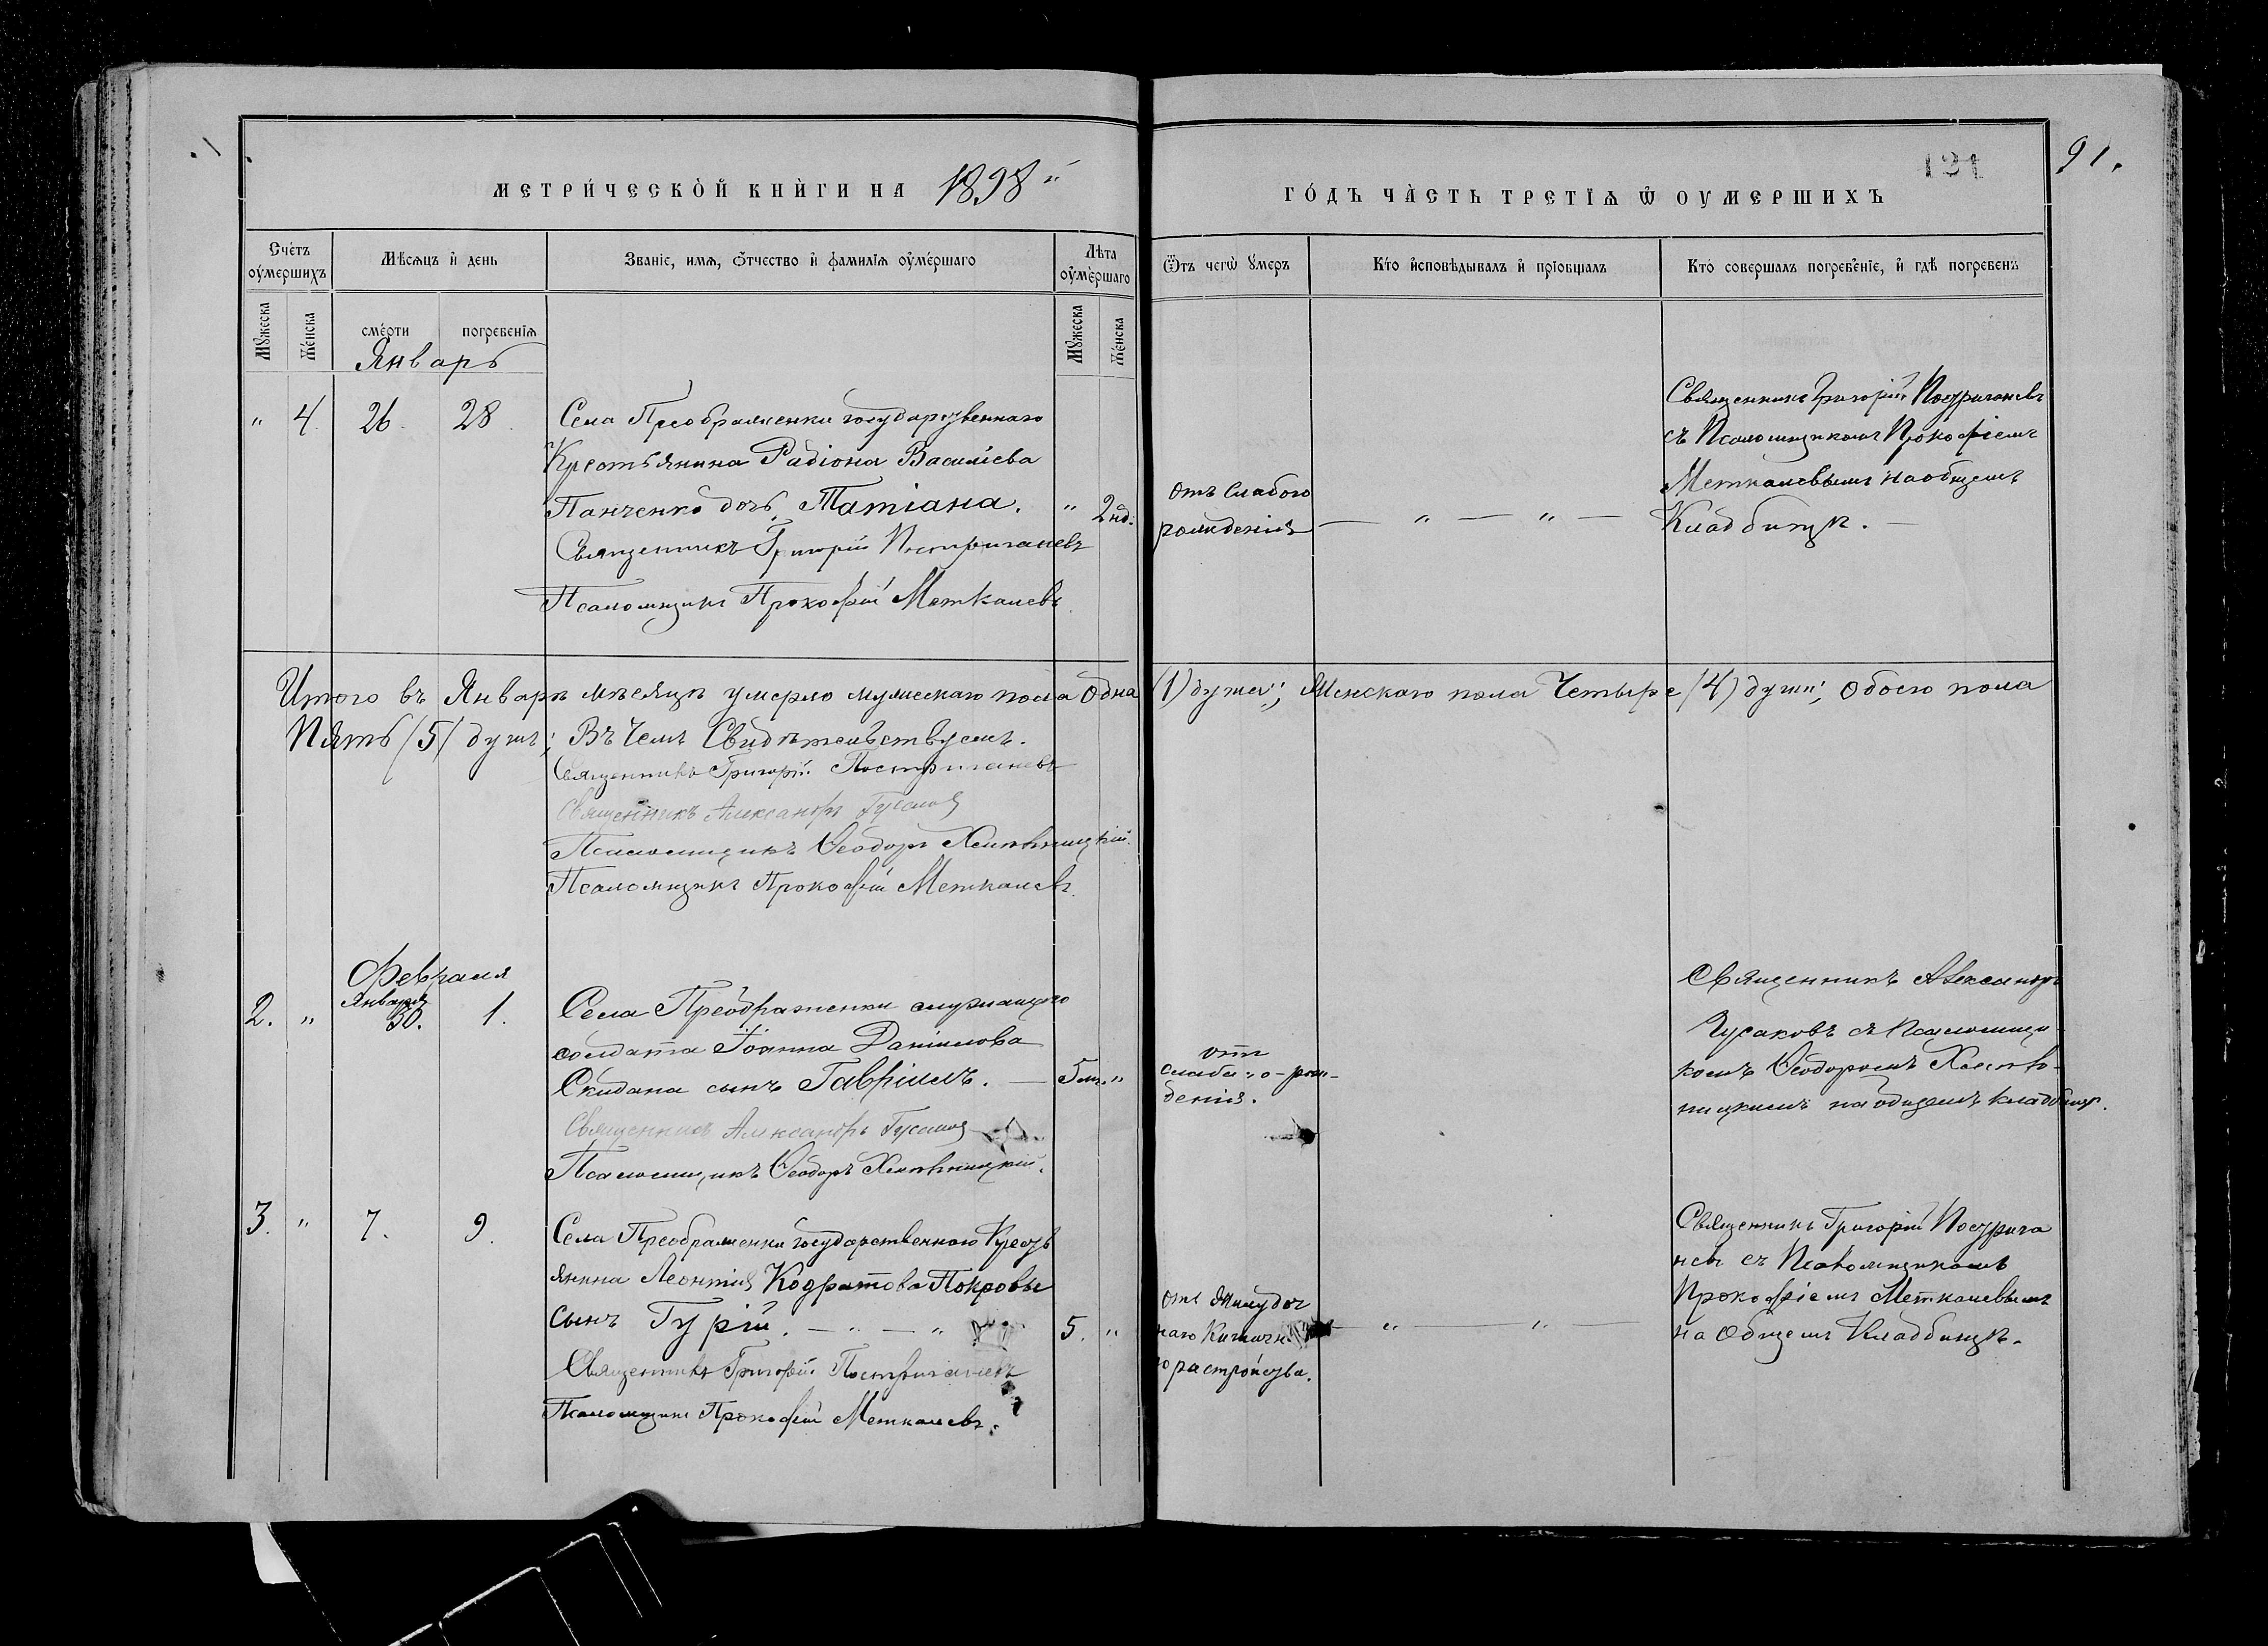 МЕТРИ́ЧЕСКО̀Й КНЍГИ НА 1898 й
ГО́ДЪ ЧА̀СТЬ ТРЕТІѦ Ѿ ОУМЕРШИХЪ
121
91.
Сче́тъ оу́мершихъ
Мѣсѧцъ и҆ день
Званіе, имѧ, ѻ҆тчество и҆ фамилїѧ оу҆ме́ршаго
Лѣта оу҆ме́ршаго
Ѿ чегѡ̀ ᲂу҆меръ
Кто̀ и҆сповѣ́дывалъ и҆ прїобщалъ
Кто̀ соверша́лъ погребе́нїе, и҆ гдѣ̀ погребенъ
Мꙋжеска
Же́нска
сме́рти
погребенїѧ
Мꙋжеска
Же́нска
Январь
" 4. 26. 28.
Села Преображенки государственнаго
Крестьянина Радіона Василіева
Панченко дочь, Татіана. " 2 нд.
Священникъ Григорій Постригачевъ
Псаломщикъ Прокофій Меткалевъ
отъ слабого
рожденія — " — " —
Священникъ Григорій Постригачевъ
съ Псаломщикомъ Прокофіемъ
Меткалевымъ на общемъ
Кладбищѣ. —
Итого въ Январѣ мѣсяцѣ умерло мужескаго пола Одна (1) душа; Женскаго пола Четыре (4) души; Обоего пола
Пять (5) душъ; Въ Чемъ Свидѣтельствуемъ.
Священникъ Григорій Постригачевъ
Священникъ Александръ Гусаковъ
Псаломщикъ Ѳеодоръ
Псаломщикъ Прокофій Меткалевъ.
Февраля
2. " Января 30. 1.
Села Преображенки
солдата Іоанна Даніилова
Скидана сынъ Гавріилъ. — 5 м. "
Священникъ Александръ Гусаковъ
Псаломщикъ Ѳеодоръ
отъ
слабаго рож-
денія.
Священникъ Александръ
Гусаковъ съ Псаломщи-
комъ Ѳеодоромъ
на общемъ кладбищѣ.
3. " 7. 9.
Села Преображенки Государственнаго Крест
янина Леонтія Кодратова Покровы
сынъ Гурій. — " — " 5. "
Священникъ Григорій Постригачевъ
Псаломщикъ Прокофій Меткалевъ.
отъ Желудоч
наго Кишечн
го растройства. — " — " —
Священникъ Григорій Пострига
чевъ съ Псаломщикомъ
Прокофіемъ Меткалевымъ
на Общемъ Кладбищѣ.